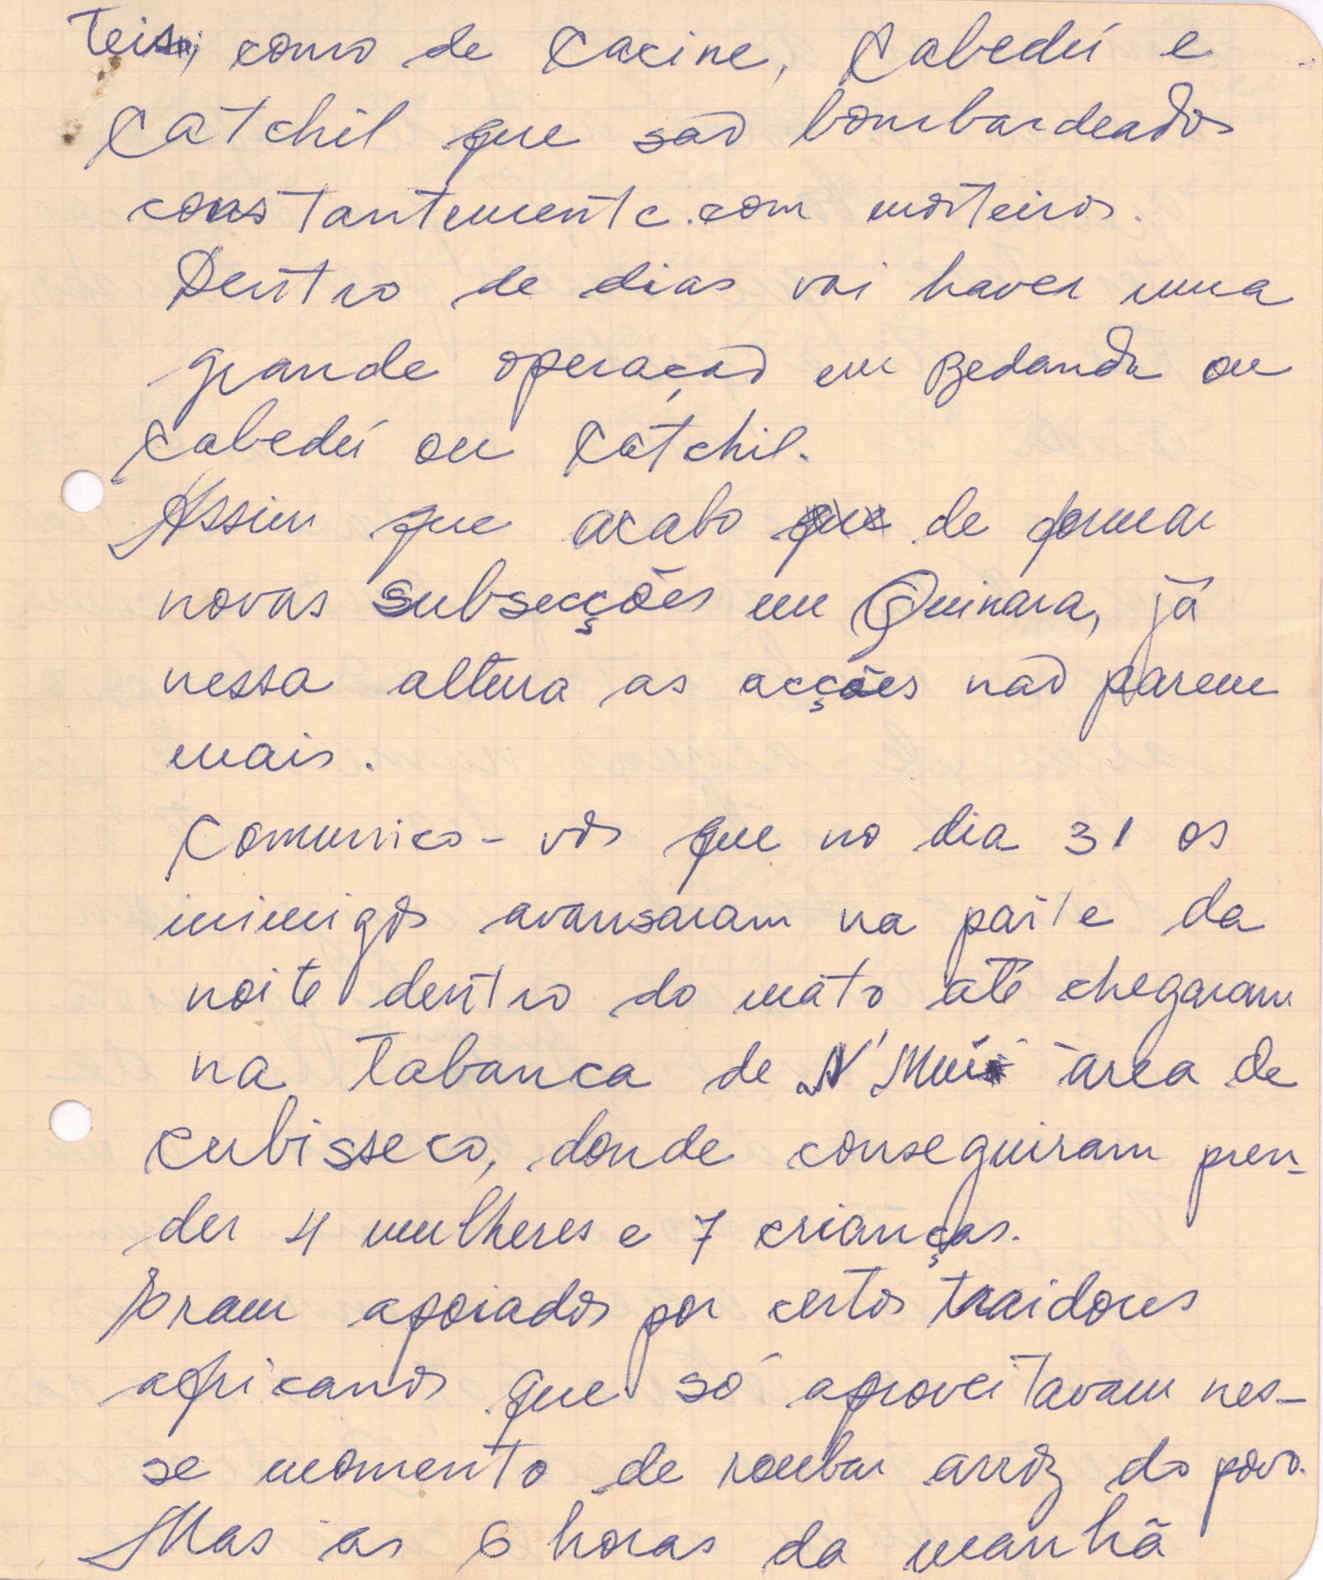 teis, como de Cacine, Cabedú e
Catchil que são bombardeados
constantemente com morteiros.
Dentro de dias vai haver uma
grande operação em Bedanda ou
Cabedú ou Catchil.
Assim que acabo de formar
novas subsecções em Quinara, já
nessa altura as acções não parem
mais.
Comunico-vos que no dia 31 os
inimigos avansaram na parte da
noite dentro do mato até chegaram
na tabanca de área de
Cubisseco, donde conseguiram pren-
der 4 mulheres e 7 crianças.
Foram apoiados por certos traidores
africanos que só aproveitavam nes-
se momento de roubar arroz do povo.
Mas ás 6 horas da manhã